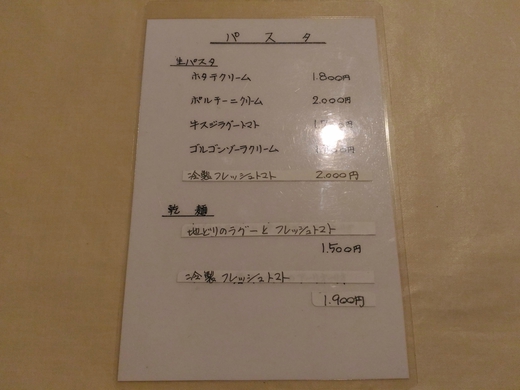 パスタ
生パスタ
ホタテクリーム 1.800円
ポルチーニクリーム 2.000円
牛スジラグートマト
ゴルゴンゾーラクリーム
冷製フレッシュトマト 2000円
乾麺
地どりのラグーとフレッシュトマト
1.500円
冷製フレッシュトマト
1.900円